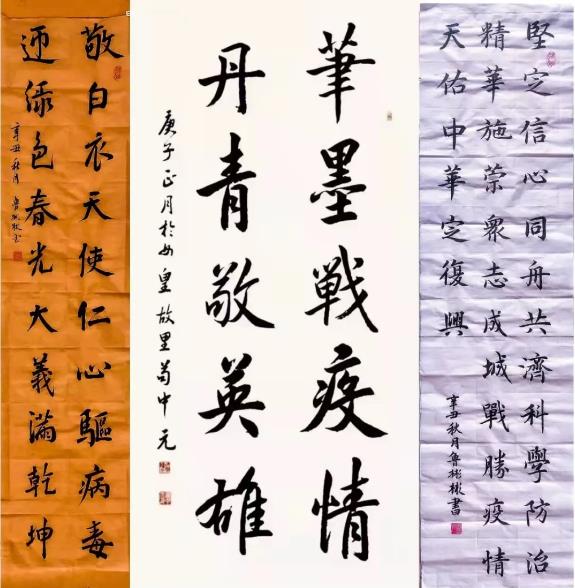 堅定信心同舟共濟科學防治
精華施策衆志成城戰勝疫情
天佑中華定復興
辛丑秋月魯彬彬書
筆墨戰疫情
丹青敬英雄
庚子正月於女皇故里苟中元
敬白衣天使仁心驅病毒
迎綠色春光大義滿乾坤
辛丑秋月魯彬彬書